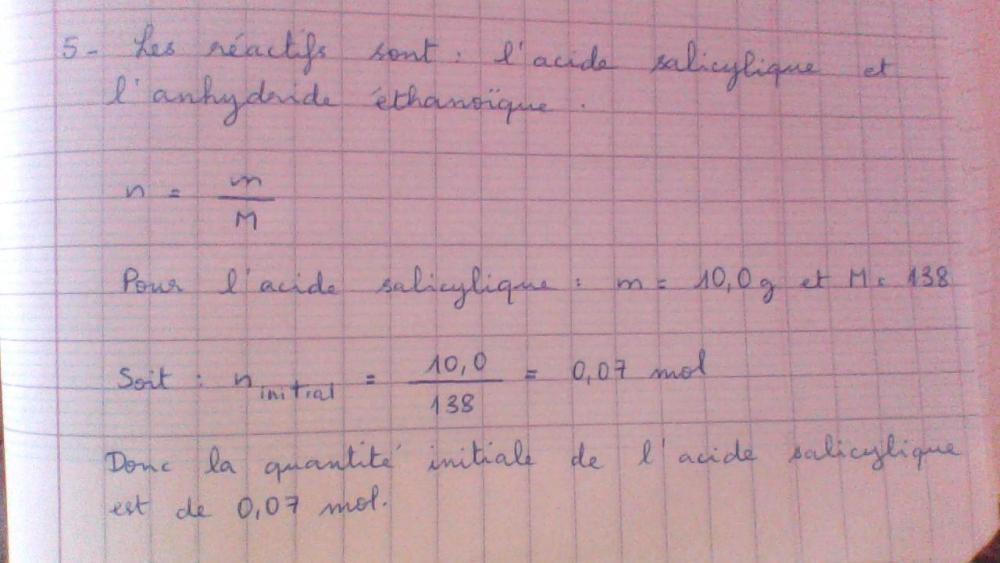 5- Les réactifs sont : l'acide salicylique et
l'anhydride éthanoïque.
n = m / M
Pour l'acide salicylique : m = 10,0g et M = 138
Soit : n initial = 10,0 / 138 = 0,07 mol
Donc la quantité initiale de l'acide salicylique
est de 0,07 mol.